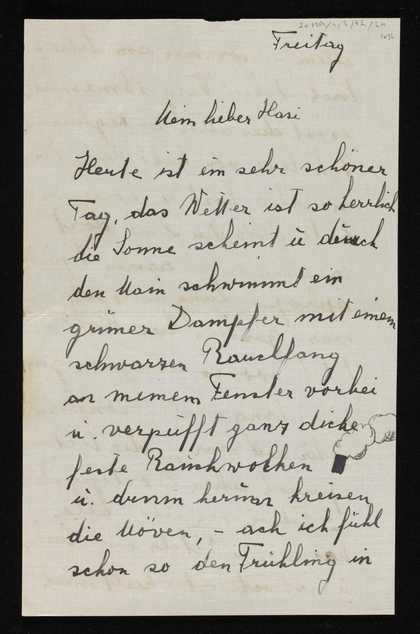 Freitag
Mein lieber Hasi
Heute ist ein sehr schöner
Tag, das Wetter ist so herrlich
die Sonne scheint u durch
den Main schwimmt ein
grüner Dampfer mit einem
schwarzen Rauchfang
an meinem Fenster vorbei
u. verpufft ganz dicke
feste Rauchwolken
u. drum herum kreisen
die Möven, – ach ich fühl
schon so den Frühling in